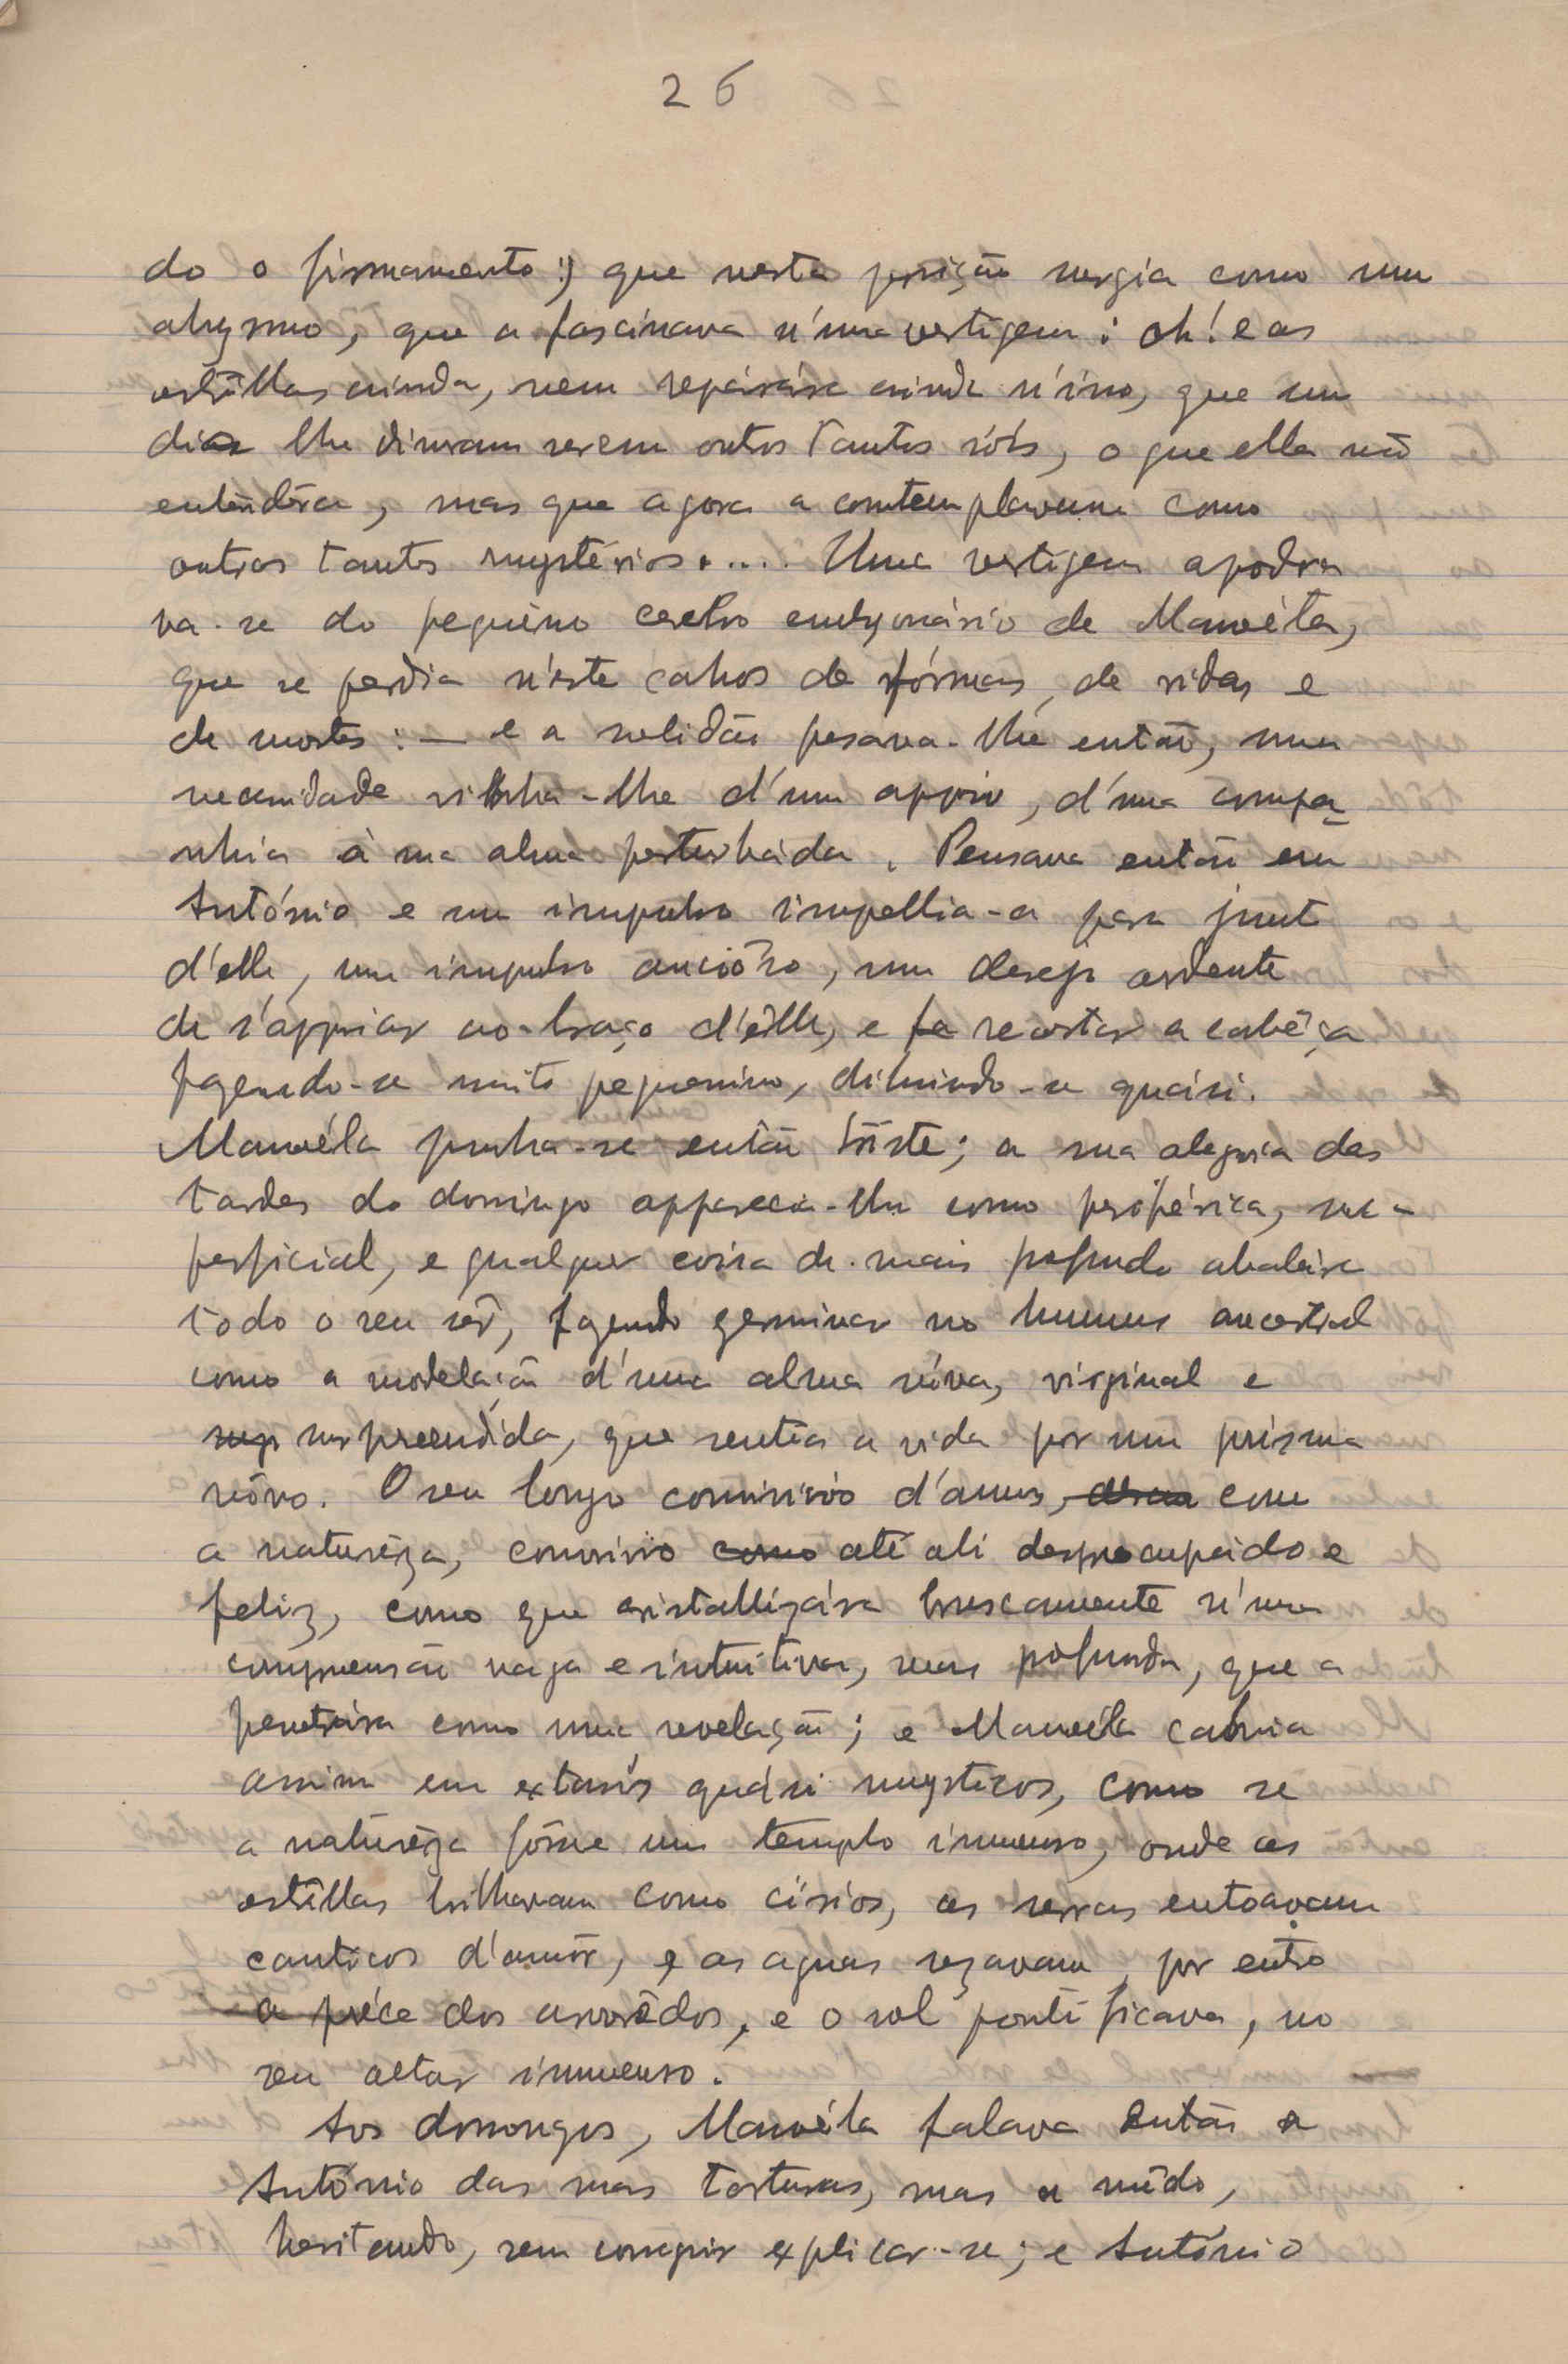 26
do o firmamento; que nesta posição surgia como um
abysmo, que a fascinava n'uma vertigem: oh! e as
estrêllas ainda, nem reparára ainda n'isso, que um
dia lhe disseram serem outros tantos sóis, o que ella não
entendêra, mas que agora a comtemplavam como
outros tantos mystérios.... Uma vertigem apodera
va-se do pequêno cerebro embryonário de Manoéla,
que se perdia n'este cahos de fórmas, de vidas e
de mortes: — e a solidão pesava-lhe então, uma
necessidade vinha-lhe d'um appoio, d'uma compa
nhia à sua alma perturbáda. Pensava então em
António e um impulso impellia-a para junto
d'elle, um impulso anciôso, um desejo ardente
de s'appoiar ao-braço d'êlle, e fa recostar a cabêça
fazendo-se muito pequenina, diluindo-se quási.
Manoéla punha-se então triste; a sua alegria das
tardes do domingo apparecia-lhe como periférica, su-
perficial, e qualquer coisa de mais profundo abalára
todo o seu sêr, fazendo germinar no humus ancestral
como a modelação d'uma alma nóva, virginal e
surp surpreendida, que sentia a vida por um prisma
nôvo. O seu longo convivio d'annos, com
a naturêza, convivio como até ali despreocupádo e
feliz, como que cristallizára bruscamente n'uma
compreensão vaga e intuitiva, mas profunda, que a
penetrára como uma revelação; e Manoéla cahia
assim em extasis quási mysticos, como se
a naturêza fôsse um templo immenso, onde as
estrêllas brilhavam como círios, as serras entoavam
canticos d'amôr, e as aguas rezavam, por entre
a préce dos arvorêdos, e o sol pontificava, no
seu altar immenso.
Aos domongos, Manoéla falava então a
António das suas torturas, mas a mêdo,
hesitando, sem conseguir explicar-se; e António